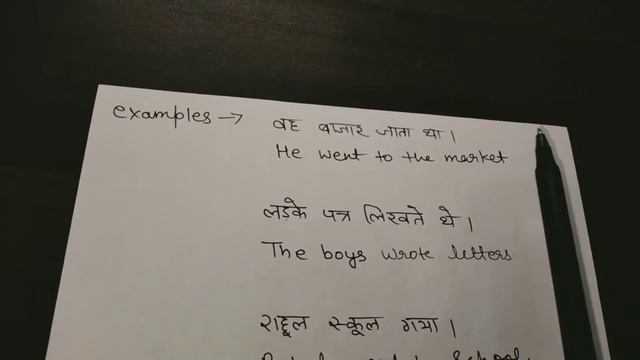 examples → वह बाजार जाता था।
He went to the market
लड़के पत्र लिखते थे।
The boys wrote letters.
राहूल स्कूल गया।
School.